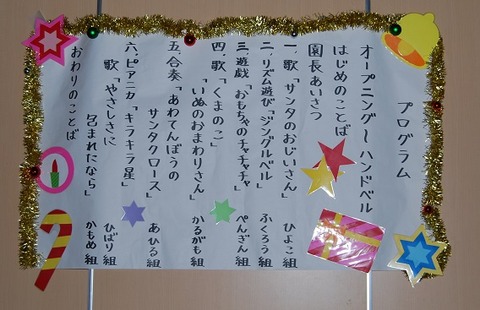 プログラム
オープニング〜ハンドベル
はじめのことば
園長あいさつ
一、歌「サンタのおじいさん」 ひよこ組
二、リズム遊び「ジングルベル」 ふくろう組
三、遊戯「おもちゃのチャチャチャ」 ぺんぎん組
四、歌「くまのこ」
「いぬのおまわりさん」 かるがも組
五、合奏「あわてんぼうの
サンタクロース」 あひる組
六、ピアニカ「キラキラ星」 ひばり組
歌「やさしさに
包まれたなら」 かもめ組
おわりのことば